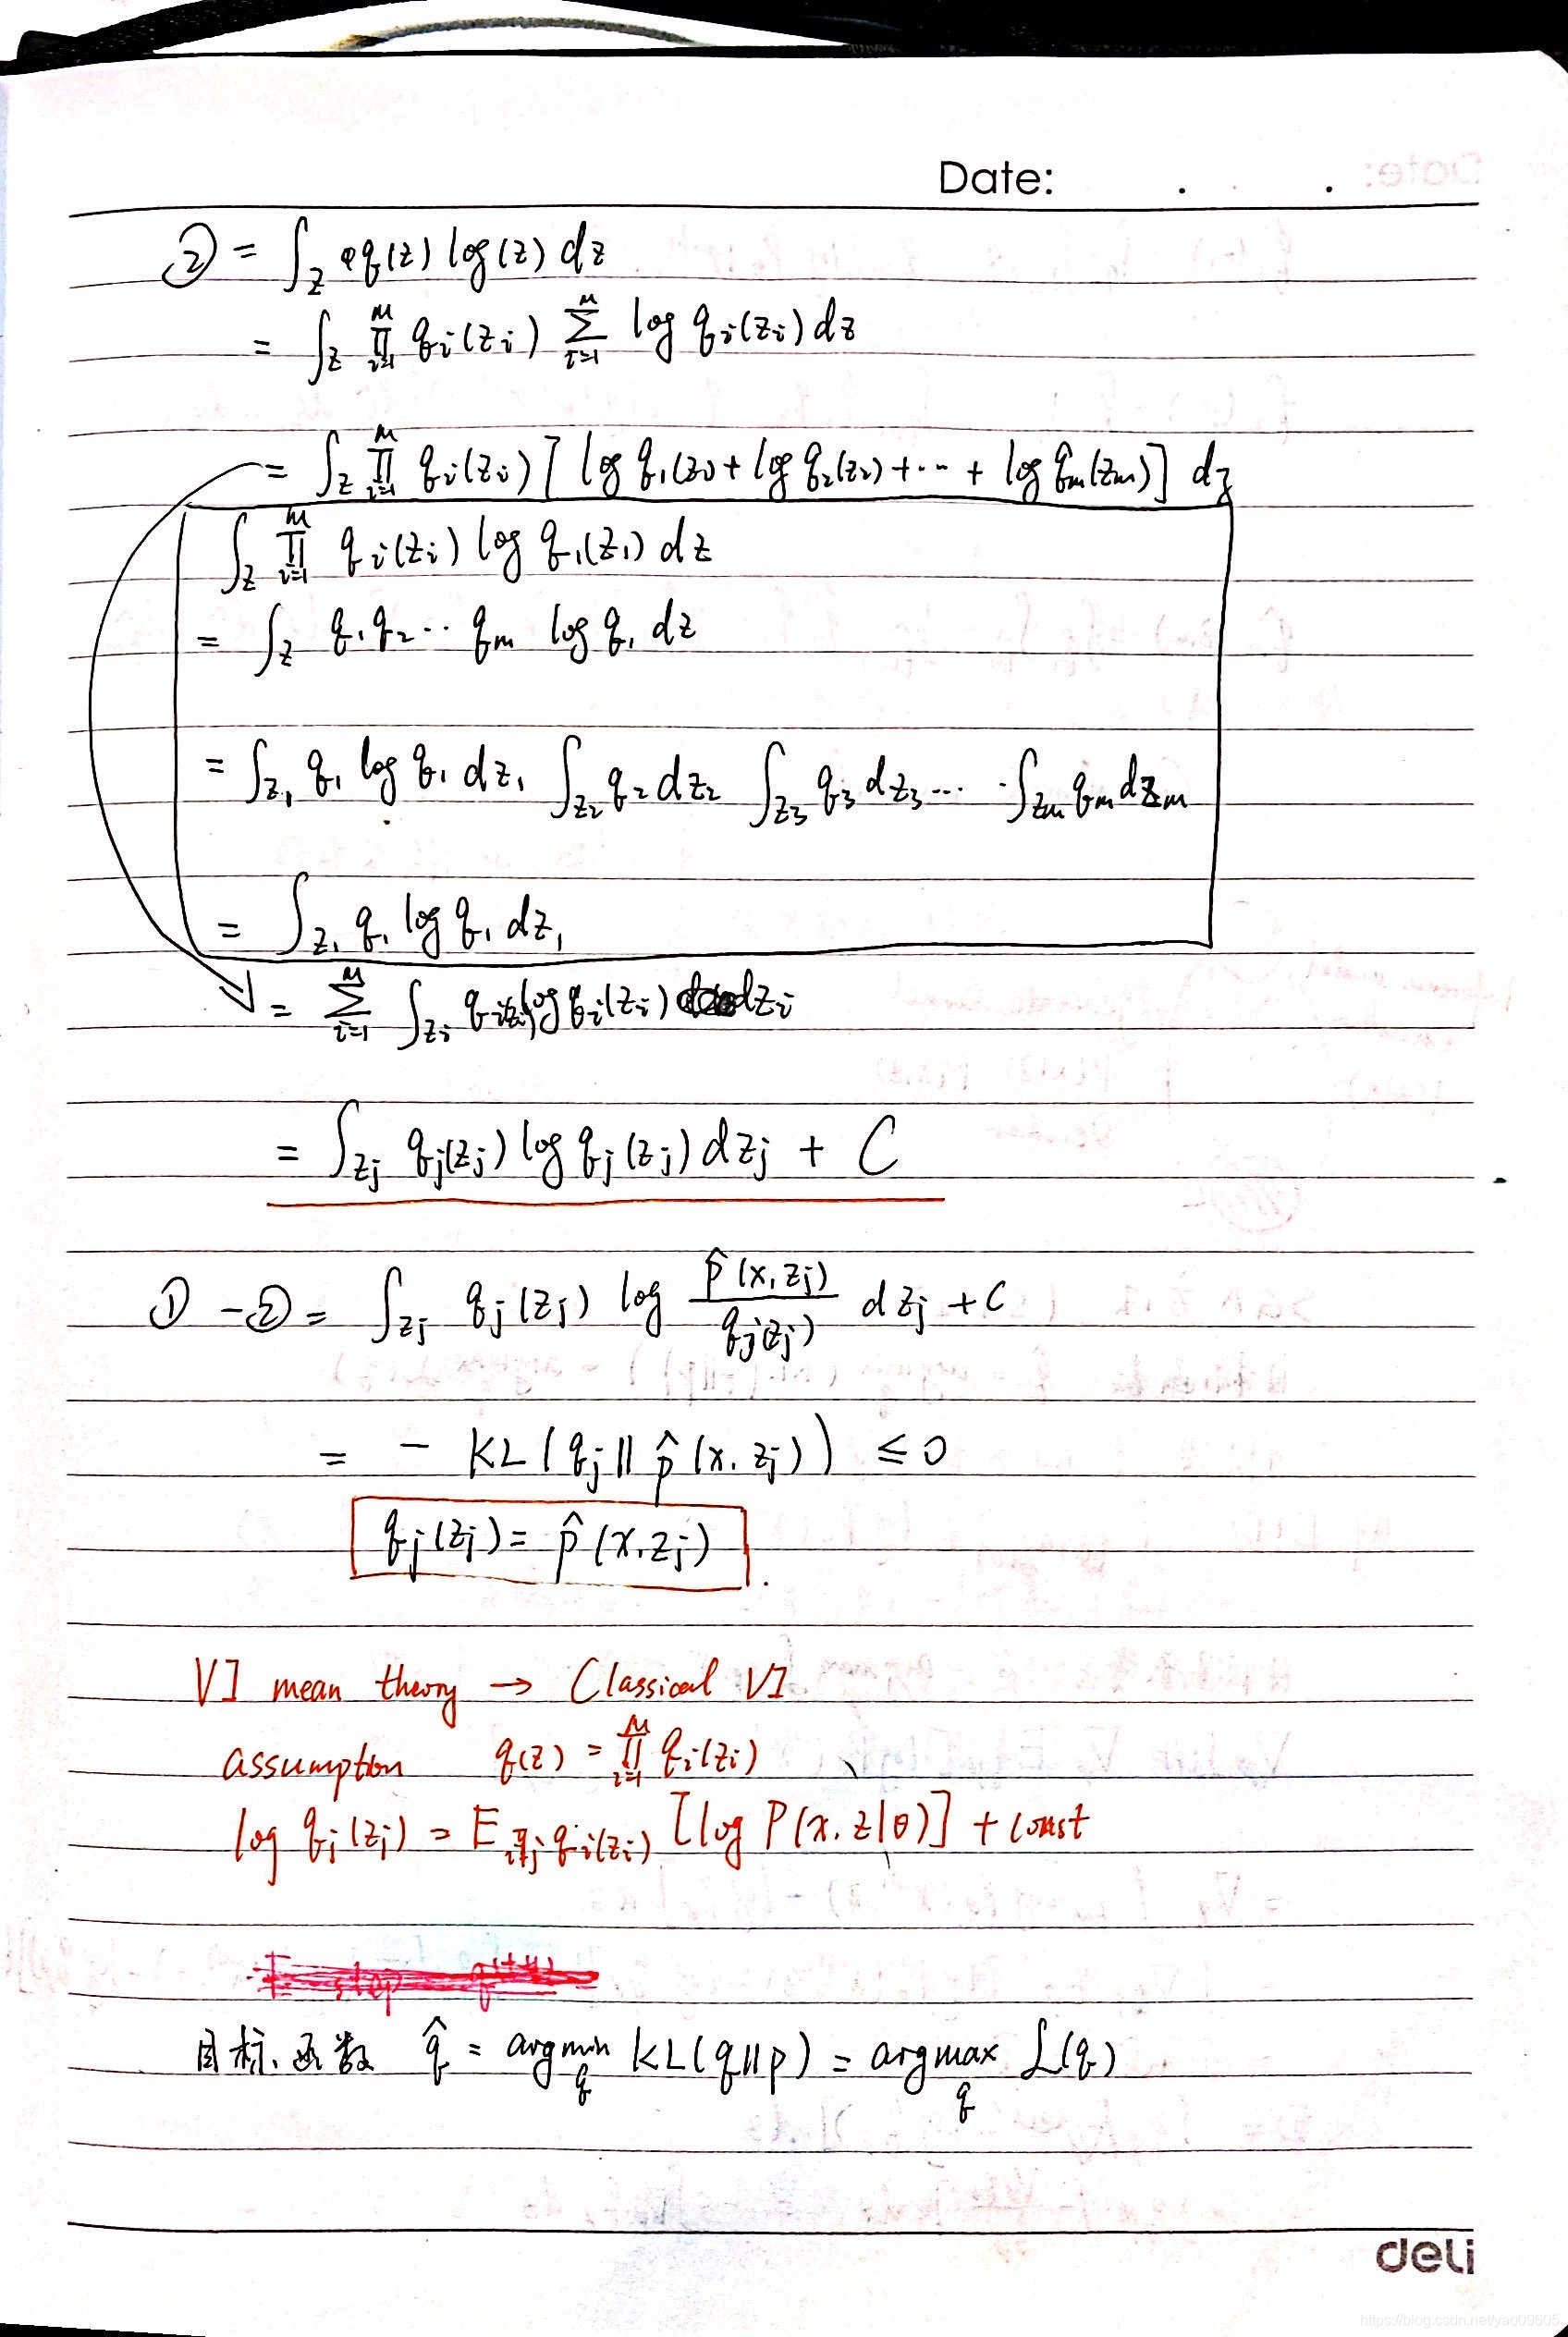 Date: . .
② = ∫_z q(z) log(z) dz
= ∫_z ∏_{i=1}^{M} q_i(z_i) ∑_{i=1}^{M} log q_i(z_i) dz
= ∫_z ∏_{i=1}^{M} q_i(z_i) [ log q_1(z_1) + log q_2(z_2) + ⋯ + log q_m(z_m) ] dz
∫_z ∏_{i=1}^{M} q_i(z_i) log q_1(z_1) dz
= ∫_z q_1 q_2 ⋯ q_m log q_1 dz
= ∫_{z_1} q_1 log q_1 dz_1 ∫_{z_2} q_2 dz_2 ∫_{z_3} q_3 dz_3 ⋯ ∫_{z_m} q_m dz_m
= ∫_{z_1} q_1 log q_1 dz_1
= ∑_{i=1}^{M} ∫_{z_i} q_i(z_i) log q_i(z_i) dz_i
= ∫_{z_j} q_j(z_j) log q_j(z_j) dz_j + C
① - ② = ∫_{z_j} q_j(z_j) log \frac{p̂(x, z_j)}{q_j(z_j)} dz_j + C
= - KL( q_j || p̂(x, z_j) ) ≤ 0
q_j(z_j) = p̂(x, z_j)
VI mean theory → Classical VI
assumption q(z) = ∏_{i=1}^{M} q_i(z_i)
log q_j(z_j) = E_{∏_{i≠j} q_i(z_i)} [log P(x, z|θ)] + const
目标函数 q̂ = argmin_q KL(q||p) = argmax_q L(q)
deli
https://blog.csdn.net/yao09605